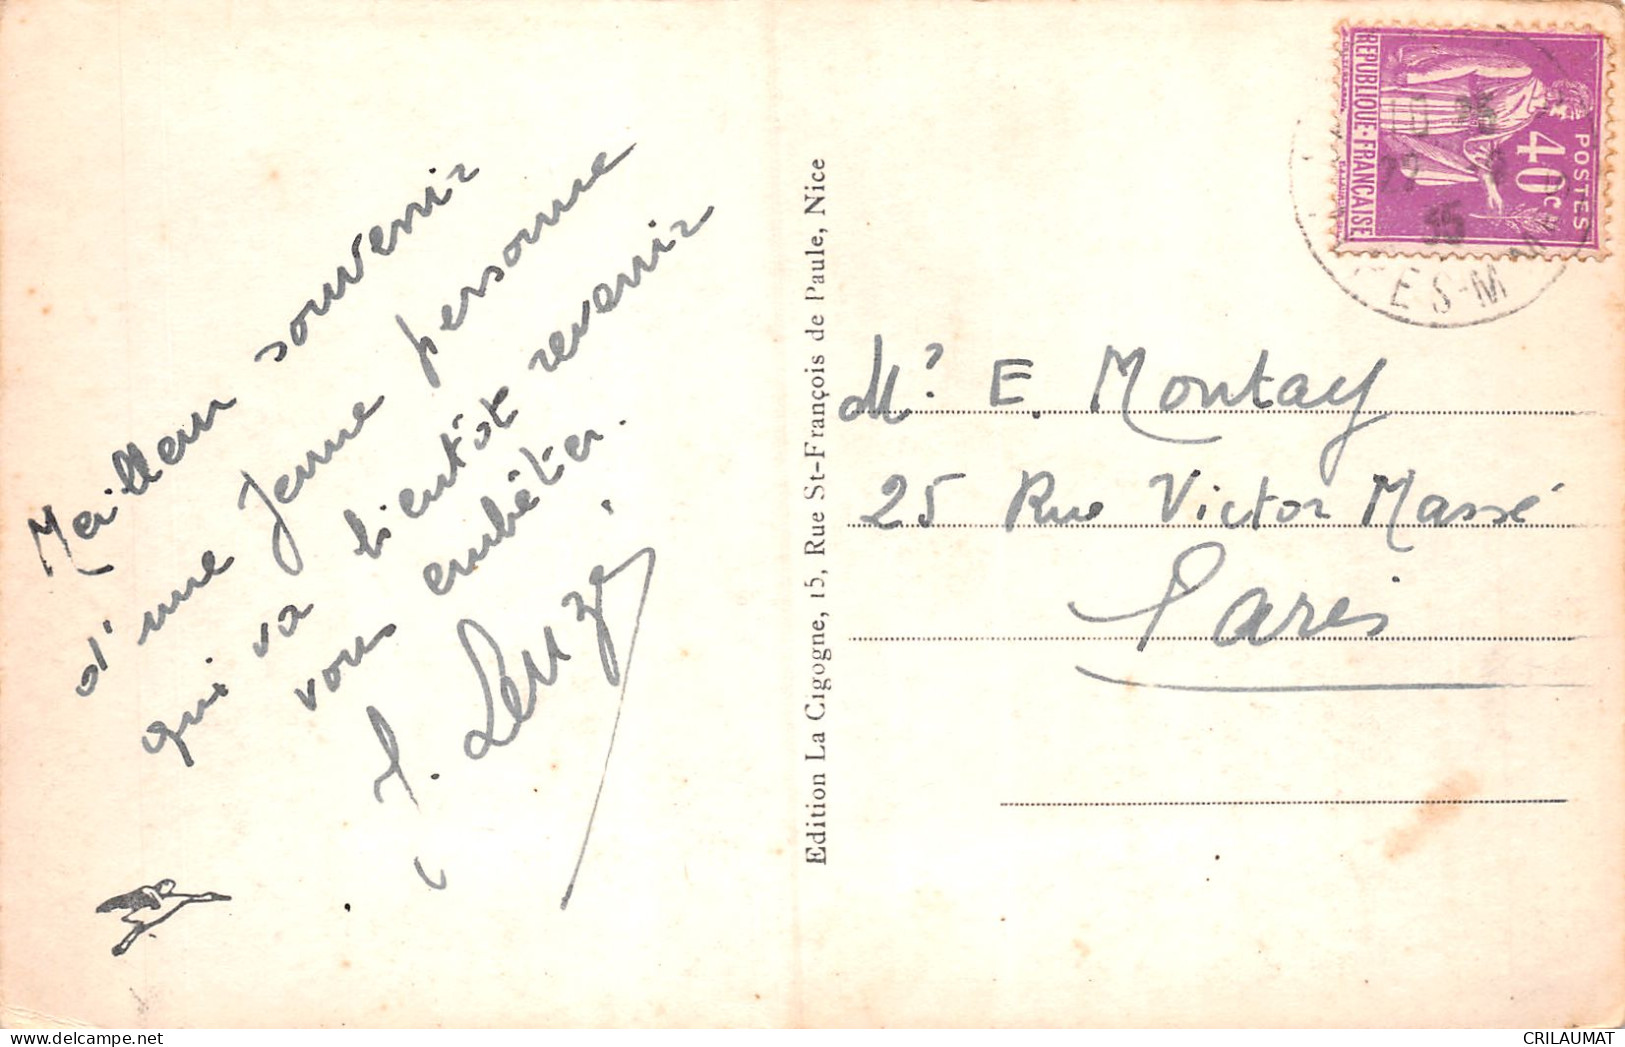 Meilleur souvenir
d'une jeune personne
qui va bientôt revenir
vous embêter.
Edition La Cigogne, 15, Rue St-François de Paule, Nice
REPUBLIQUE·FRANÇAISE
POSTES
40c
35
ES-M
M. E. Montay
25 Rue Victor Massé
Paris
CRILAUMAT